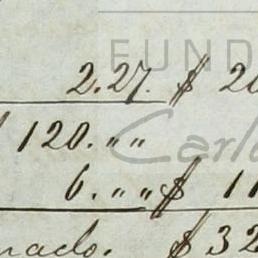 FUND
2.27. $ 20
120. " "
Carlo
6. " " $ 11
nado. $ 32